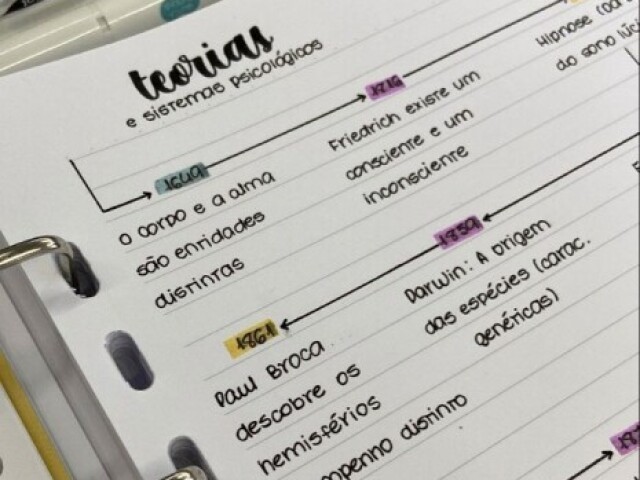 teorias
e sistemas psicológicos
1649
o corpo e a alma
são entidades
distintas
1816
Friedrich existe um
consciente e um
inconsciente
Hipnose
do sono
1859
Darwin: A origem
das espécies (carac.
genéticas)
1861
Paul Broca
descobre os
hemisférios
distinto